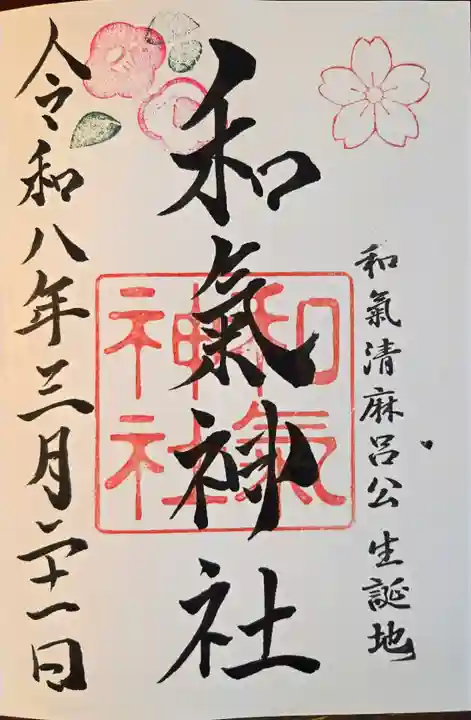 和氣清麻呂公 生誕地
和氣神社
和氣
神社
令和八年三月二十一日